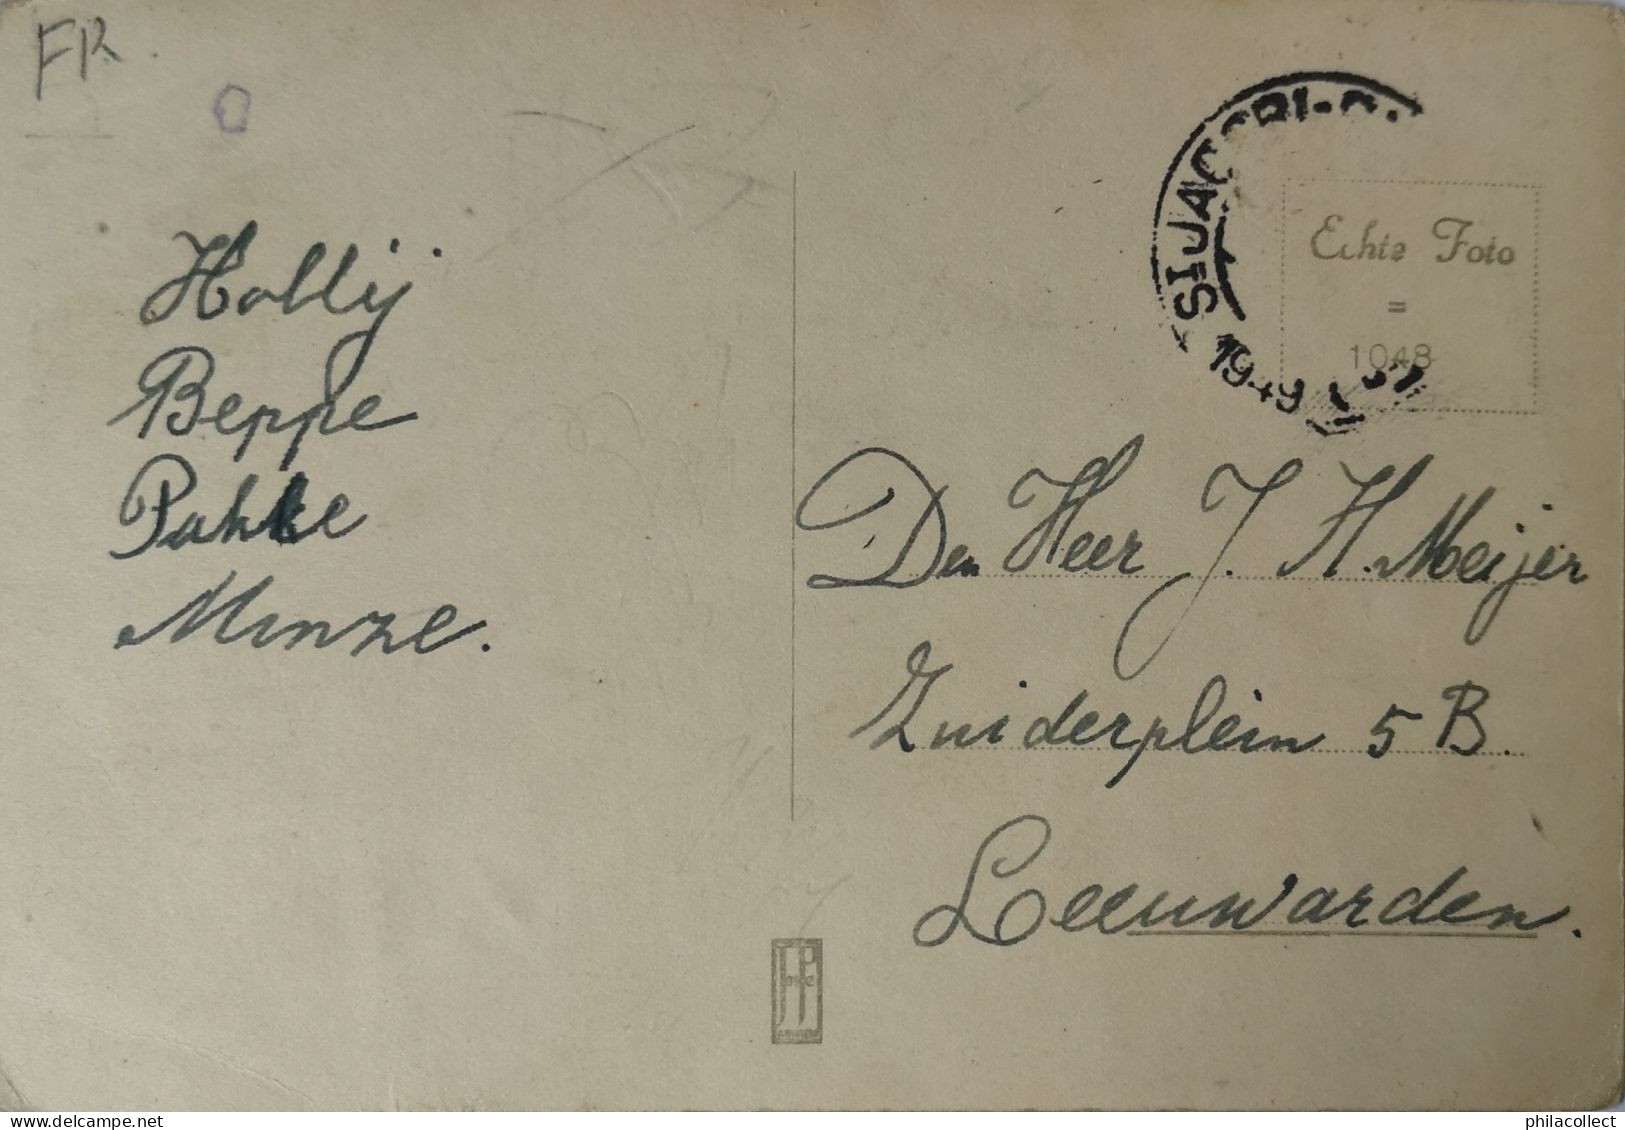 FR
Hollij
Beppe
Pakke
Minze.
S.I.JAC
1949
Echte Foto
=
1048
Den Heer J. H. Meijer
Zuiderplein 5 B.
Leeuwarden.
philacollect